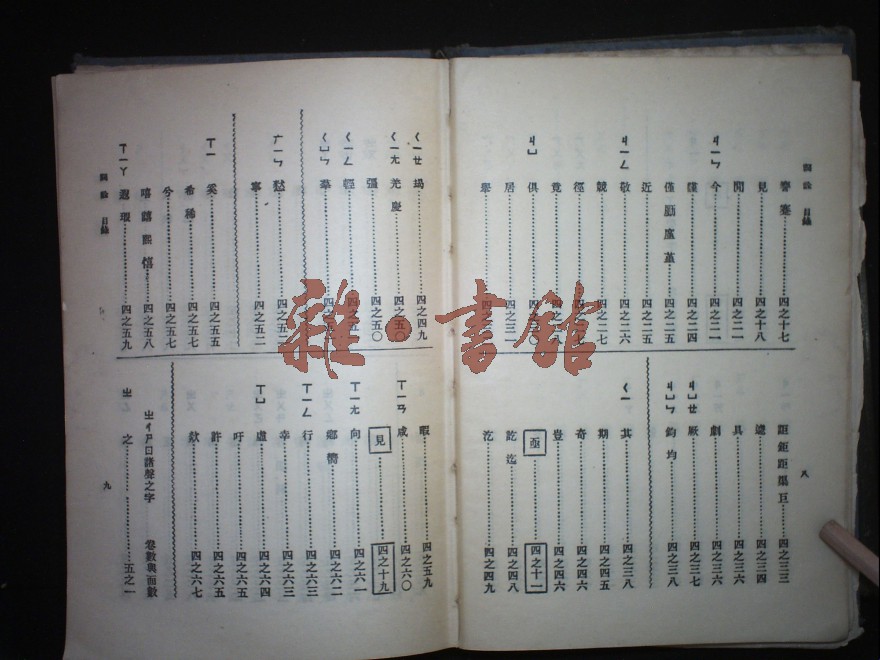 詞詮 目錄
謇蹇 四之十七
見 四之十八
間 四之二一
ㄐㄧㄣ 今 四之二一
謹 四之二四
僅 四之二五
近 四之二五
ㄐㄧㄥ 敬 四之二六
競 四之二七
徑
竟
ㄐㄩ 俱
居 四之三一
舉
詎鉅距巨 四之三三
遽 四之三四
具 四之三六
劇 四之三六
ㄐㄩㄝ 厥 四之三七
ㄐㄩㄣ 鈞均 四之三八
ㄑㄧ 其 四之三八
期 四之四五
奇 四之四六
豈 四之四六
亟 四之十一
訖迄 四之四八
汔 四之四九
八
ㄑㄧㄝ 朅 四之四九
ㄑㄧㄤ 羌慶 四之五〇
彊 四之五〇
ㄑㄧㄥ 輕
ㄑㄩㄣ 羣
ㄏㄧㄣ 憖
寧 四之五二
ㄒㄧ 奚 四之五五
希稀 四之五七
兮 四之五七
嘻譆熙 四之五八
ㄒㄧㄚ 遐瑕 四之五九
詞詮 目錄
暇 四之五九
ㄒㄧㄢ 咸 四之六〇
見 四之十九
ㄒㄧㄤ 向 四之六一
鄉嚮 四之六二
ㄒㄧㄥ 行 四之六三
幸 四之六三
ㄒㄩ 虛 四之六四
吁 四之六五
許 四之六五
歘 四之六七
ㄓㄔㄕㄖ諸聲之字 卷數與面數
ㄓ 之 五之一
九
雜·書館